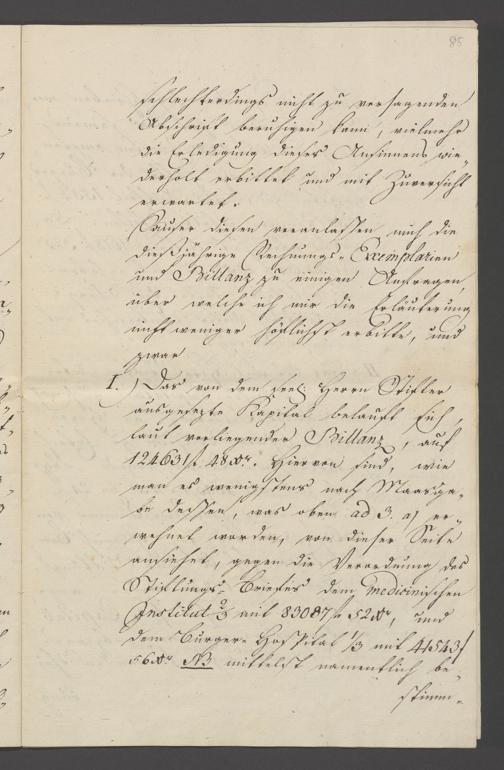 85
schlechterdings nicht zu versagenden
Abschrift beruhigen kann, vielmehr
die Erledigung dieses Ansinnens wie„
derholt erbittet und mit Zuversicht
erwartet.
Ausser diesen veranlassen mich die
dießjährige Rechnungs-Exemplarien
und Billanz zu einigen Anfragen,
über welche ich mir die Erläuterung
nicht weniger höflichst erbitte, und
zwar
I.) Das von dem seel: Herrn Stifter
ausgesezte Kapital belauft sich
laut vorliegender Billanz, auf
124631 f 48 Xr. Hiervon sind, wie
man es wenigstens nach Maasga„
be dessen, was oben ad 3. a) er„
wehnet worden, von dieser Seite
ansiehet, gegen die Verordnung des
Stiftungs-Briefes dem medicinischen
Institut 2/3 mit 83087 f 52 Xr, und
dem Burger-Hospital 1/3 mit 41543 f
56 Xr NB mittelst namentlich be„
stimm„